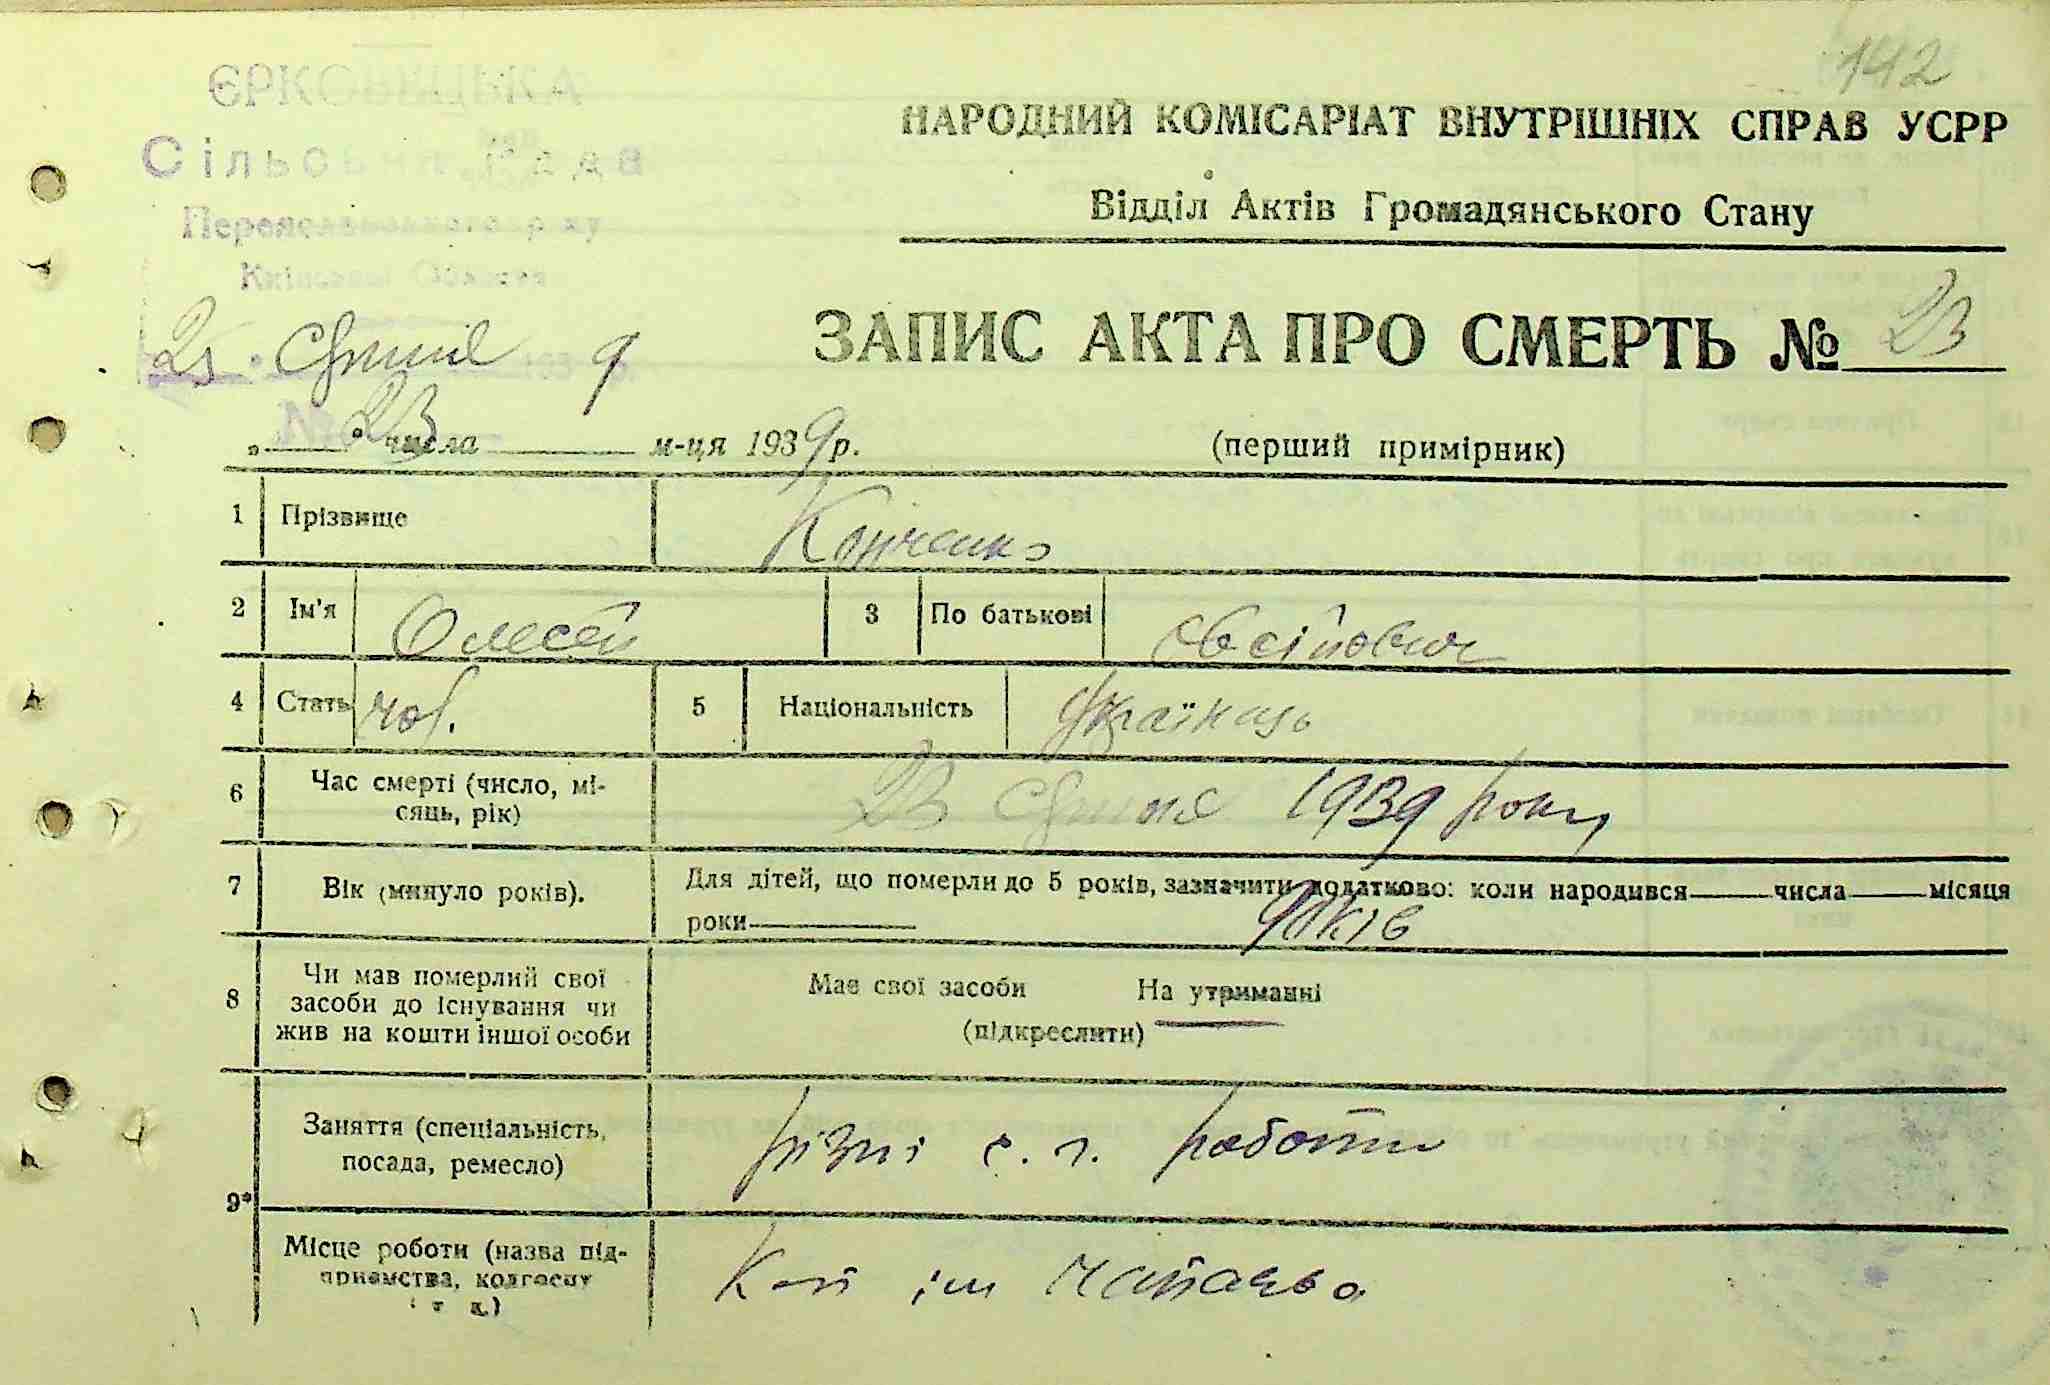 142
ЄРКОВЕЦЬКА
Сільська Рада
Переяславського р-ну
Київської Области
НАРОДНИЙ КОМІСАРІАТ ВНУТРІШНІХ СПРАВ УСРР
Відділ Актів Громадянського Стану
ЗАПИС АКТА ПРО СМЕРТЬ № 23
193 р.
№ 23
„ “ числа м-ця 1939 р.
(перший примірник)
1 Прізвище
2 Ім'я Олесей 3 По батькові Овсійович
4 Стать чол. 5 Національність Українець
6 Час смерті (число, мі-
сяць, рік) 23 1939 року
7 Вік (минуло років). Для дітей, що померли до 5 років, зазначити додатково: коли народився числа місяця
роки
8 Чи мав померлий свої
засоби до існування чи
жив на кошти іншої особи
Має свої засоби На утриманні
(підкреслити)
9* Заняття (спеціальність,
посада, ремесло) різні с. г. роботи
Місце роботи (назва під-
приємства, колгоспу
і т. д.) Кол ім Чапаєва